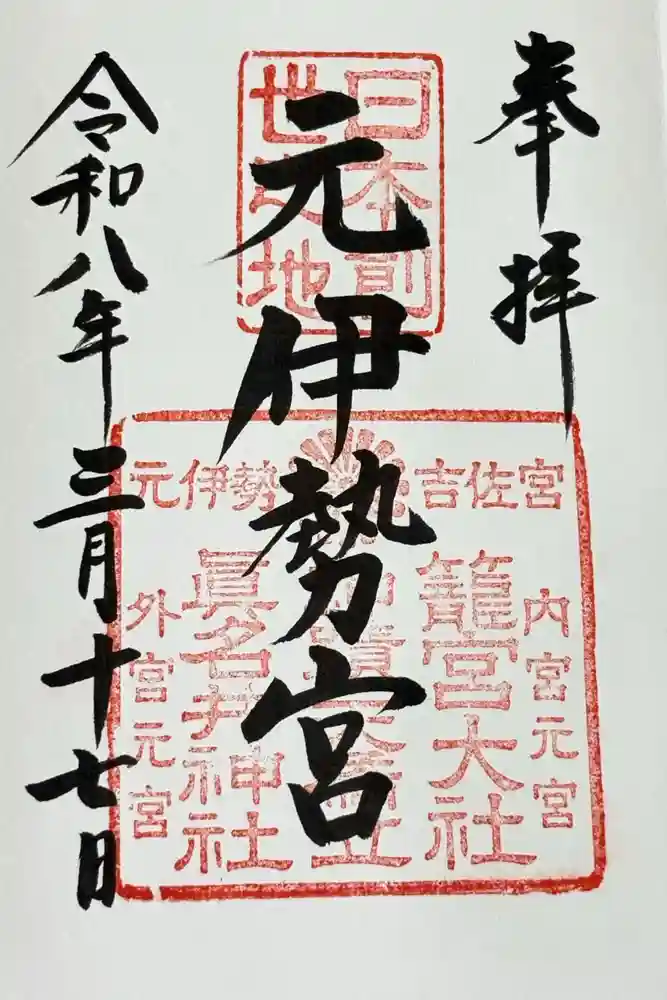 奉拝
日本前
世之地
元伊勢宮
吉佐宮
元伊勢
内宮元宮
籠宮大社
眞名井神社
外宮元宮
令和八年三月十七日